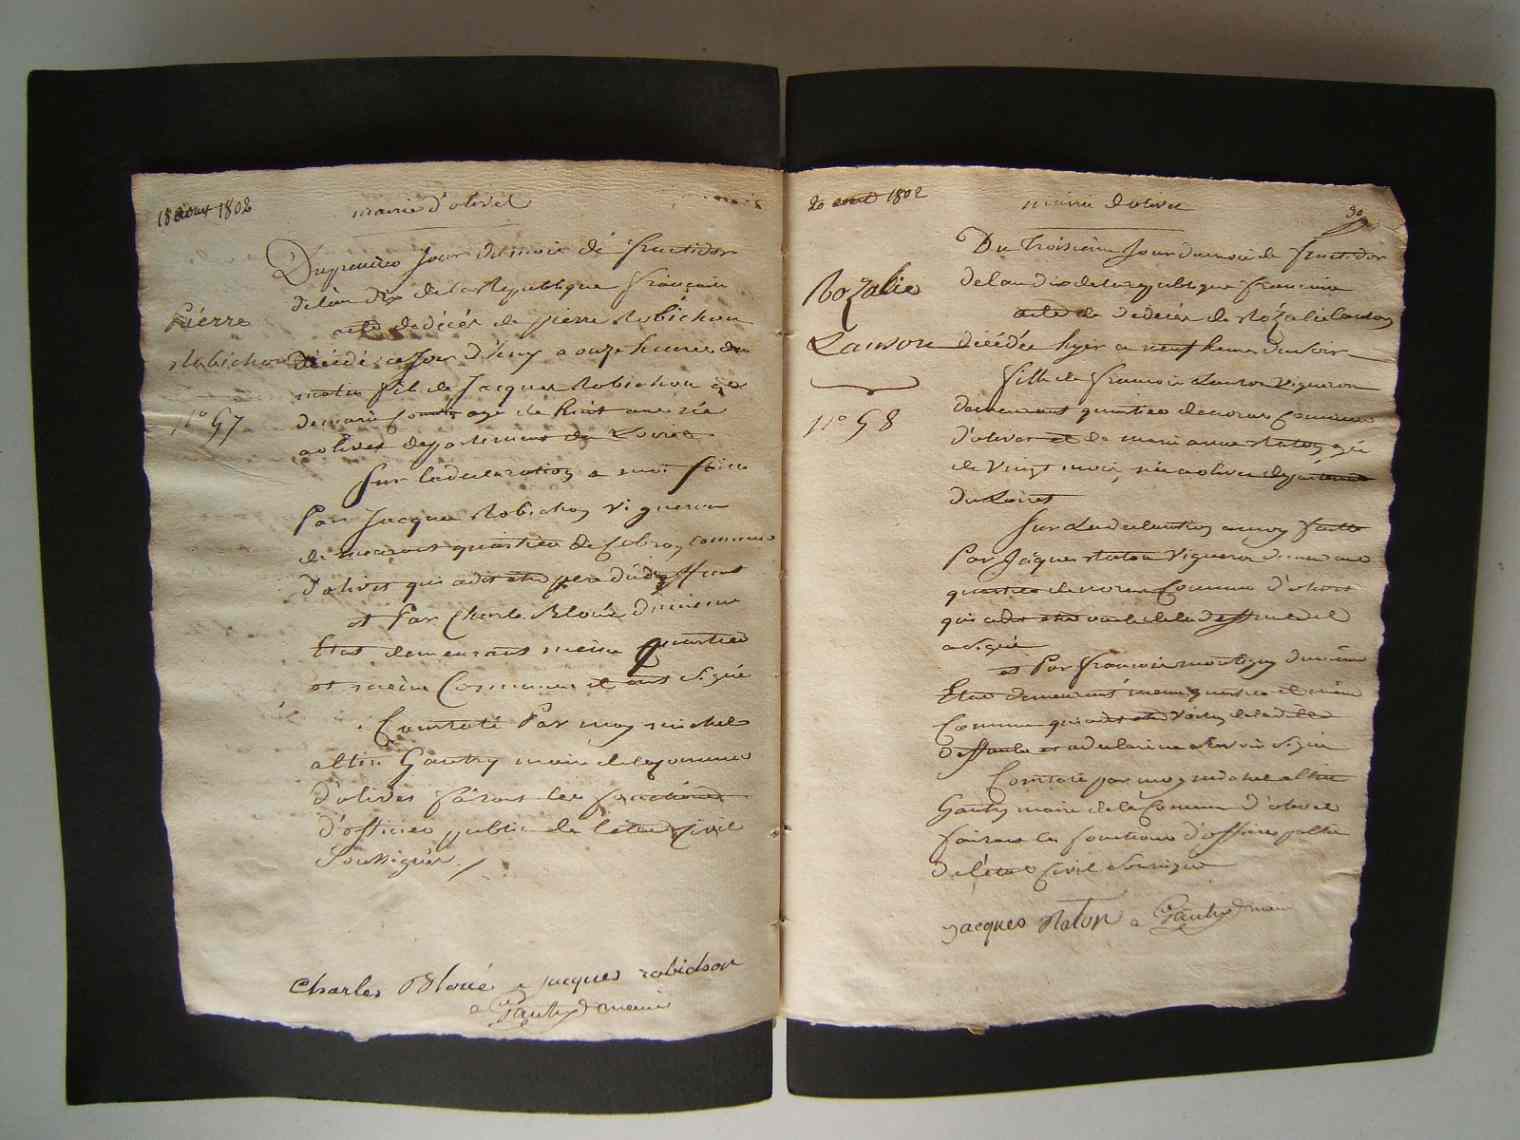 18 aout 1802
mairie d'olivet
Du premier Jour du mois de fructidor
de lan dix de la Republique francaise
acte de décés de pierre Robichon
Pierre
Robichon
n° 57
décédé ce Jour d'huy a onze heures du
matin fils de Jacques Robichon
de marie agé de huit ans née
a olivet departement du Loiret
Sur la declaration a moi faitte
Par Jacques Robichon Vigneron
demeurant quartier de commune
d'olivet qui a dit etre pere du deffunt
et Par Charle Bloué du meme
Etat demeurant meme quartier
et meme Commune et ont signé
Constaté Par moy michel
altin Gautry maire de la commune
d'olivet faisant les fonctions
d'officier public de l'état Civil
Soussignés
Charles Bloué jacques robichon
Gautry maire
20 aout 1802
mairie d'olivet
30
Du troisieme Jour du mois de fructidor
de lan dix de la republique francaise
acte de decés de Rozalie Lauron
Rozalie
Lauron
n° 58
décédée hyer a neuf heures du soir
fille de francois Lauron Vigneron
demeurant quartier de commune
d'olivet et de marie anne Raton agé
de vingt mois née a olivet departement
du Loiret
Sur La declaration a moy faitte
Par Jacques Raton Vigneron demeurant
quartier de Commune d'olivet
qui a dit etre oncle de la deffunte et
a signé
et Par francois montigny du meme
Etat demeurant meme quartier et meme
Commune qui a dit etre voisin de la dite
Deffunte et a declaré ne savoir signé
Constaté par moy michel altin
Gautry maire de la Commune d'olivet
faisant les fonctions d'officier public
de l'état Civil soussigné
jacques Raton Gautry maire